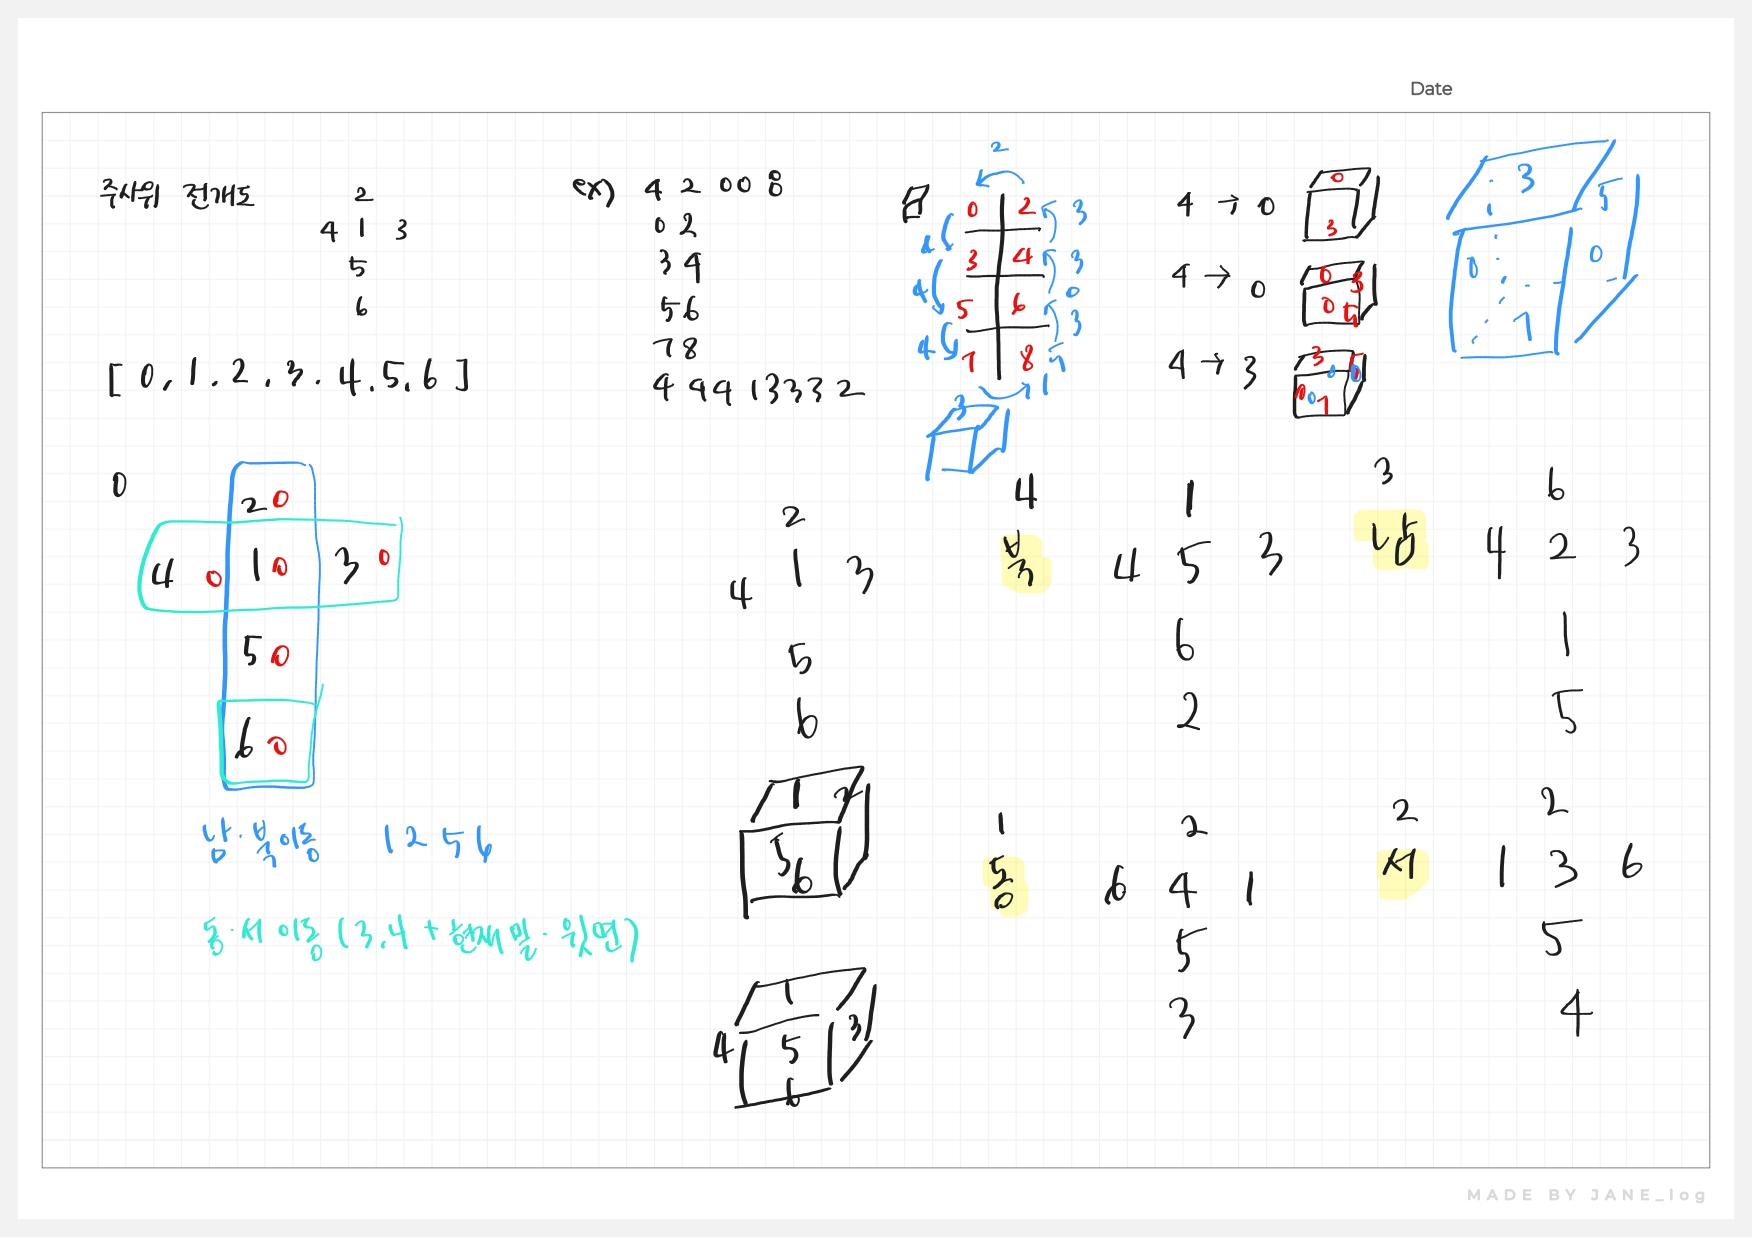 Date
주사위 전개도
2
4 1 3
5
6
[ 0, 1. 2, 3. 4. 5. 6 ]
ex) 4 2 0 0 8
0 2
3 4
5 6
7 8
4 4 4 1 3 3 3 2
2
0 2 3
4 3 4 3
4 5 6 0 3
4 7 8 5
1
3
4 → 0
0
3
4 → 0
0 3
0 5
4 → 3
3
7
3 5
1
0 0
7
0
2 0
4 0 1 0 3 0
5 0
6 0
남·북이동 1 2 5 6
동·서 이동 (3,4 + 현재 밑·윗면)
2
4 1 3
5
6
1 2
5
6
1
4 5 3
6
4
북
1
4 5 3
6
2
3
남
6
4 2 3
1
5
1
동
2
6 4 1
5
3
2
서
2
1 3 6
5
4
MADE BY JANE_log